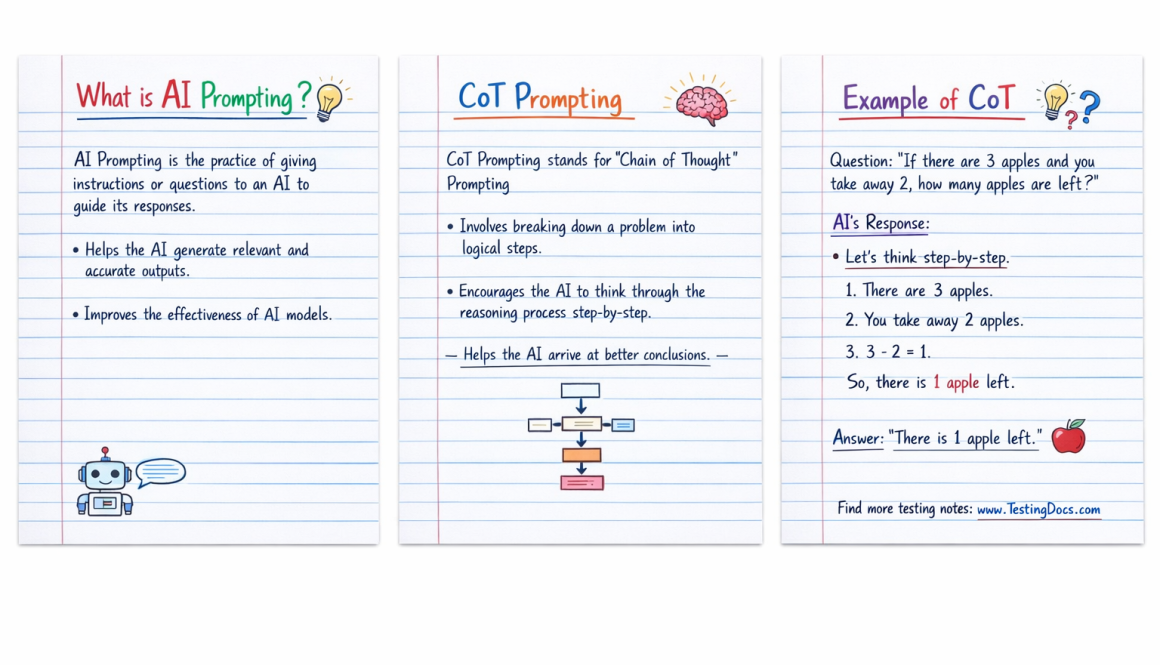 What is AI Prompting?
AI Prompting is the practice of giving
instructions or questions to an AI to
guide its responses.
• Helps the AI generate relevant and
accurate outputs.
• Improves the effectiveness of AI models.
CoT Prompting
CoT Prompting stands for "Chain of Thought"
Prompting
• Involves breaking down a problem into
logical steps.
• Encourages the AI to think through the
reasoning process step-by-step.
— Helps the AI arrive at better conclusions. —
Example of CoT
Question: "If there are 3 apples and you
take away 2, how many apples are left?"
AI's Response:
• Let's think step-by-step.
1. There are 3 apples.
2. You take away 2 apples.
3. 3 - 2 = 1.
So, there is 1 apple left.
Answer: "There is 1 apple left."
Find more testing notes: www.TestingDocs.com